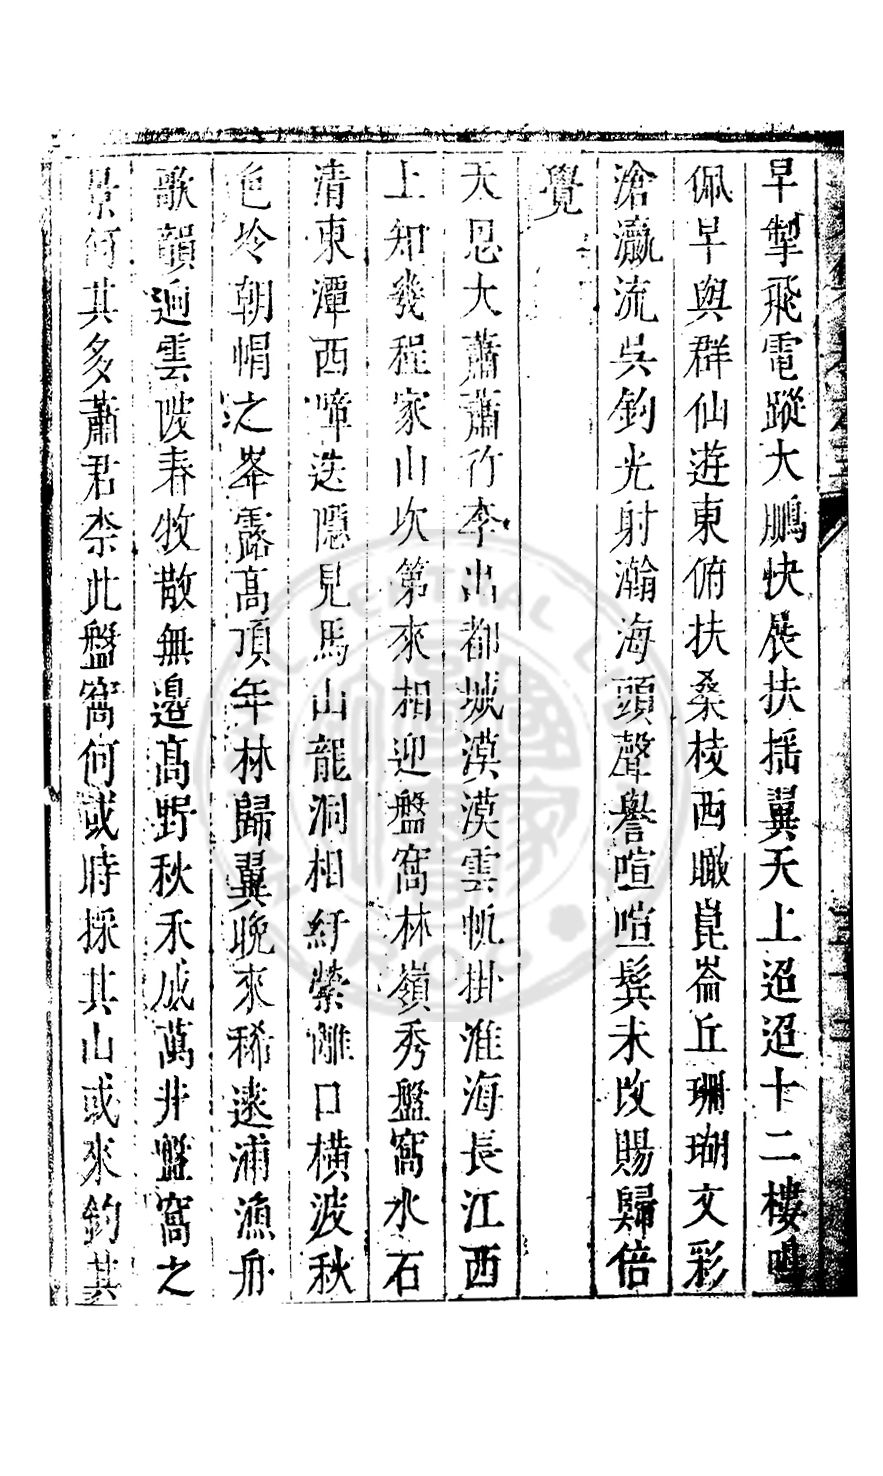 早掣飛電蹤大鵬快展扶揺翼天上迢迢十二樓鳴
佩早與群仙遊東俯扶桑枝西瞰崑崙丘珊瑚文彩
滄瀛流吳鈎光射瀚海頭聲譽喧喧鬂未改賜歸倍
覺
天恩大蕭蕭行李出都城漠漠雲帆掛淮海長江西
上知幾程家山次第來相迎盤窩林嶺秀盤窩水石
清東潭西嶂迭隱見馬山龍洞相紆縈灘口橫波秋
色冷朝帽之峯露高頂年林歸翼晚來稀遠浦漁舟
歌韻迥雲陂春牧散無邊高野秋禾成萬井盤窩之
景何其多蕭君柰此盤窩何或時採其山或來釣其